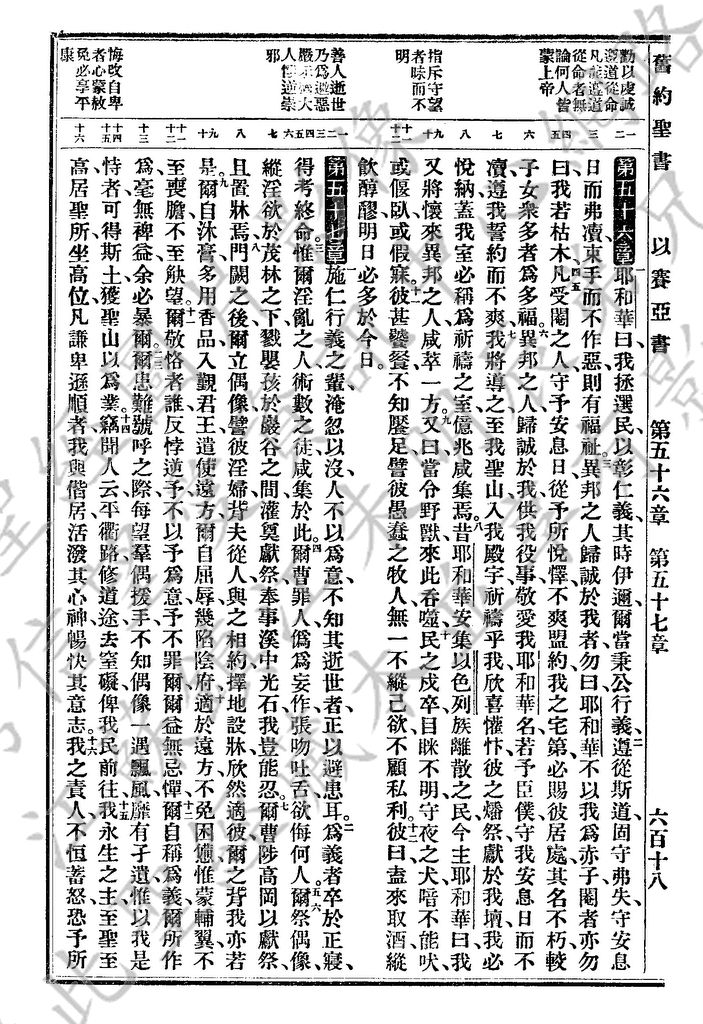 舊約聖書 以賽亞書 第五十六章 第五十七章 六百十八
勸以虔誠
遵道從命
凡能遵道
從命者無
論何人皆
蒙上帝
指斥守望
者昧而不
明
善人逝世
乃為避惡
人性逆崇
邪
悔改自卑
者心蒙赦
免必享平
康
第五十六章 耶和華曰我拯選民以彰仁義其時伊邇爾當秉公行義遵從斯道固守弗失守安息
日而弗瀆束手而不作惡則有福祉異邦之人歸誠於我者勿曰耶和華不以我爲赤子閹者亦勿
曰我若枯木凡受閹之人守予安息日從予所悅懌不爽盟約我之宅第必賜彼居處其名不朽較
子女衆多者爲多福異邦之人歸誠於我供我役事敬愛我耶和華名若予臣僕守我安息日而不
瀆遵我誓約而不爽我將導之至我聖山入我殿宇祈禱乎我欣喜懽忭彼之燔祭獻於我壇我必
悅納蓋我室必稱爲祈禱之室億兆咸集焉昔耶和華安集以色列族離散之民今主耶和華曰我
又將懷來異邦之人咸萃一方又曰當令野獸來此吞噬民之戍卒目眯不明守夜之犬喑不能吠
或偃臥或假寐彼甚饕餮不知饜足譬彼愚蠢之牧人無一不縱己欲不顧私利彼曰盍來取酒縱
飲醇醪明日必多於今日
第五十七章 施仁行義之輩淹忽以沒人不以爲意不知其逝世者正以避患耳爲義者卒於正寢
得考終命惟爾淫亂之人術數之徒咸集於此爾曹罪人僞爲妄作張吻吐舌欲侮何人爾祭偶像
縱淫欲於茂林之下戮嬰孩於巖谷之間灌奠獻祭奉事溪中光石我豈能忍爾曹陟高岡以獻祭
且置牀焉門闑之後爾立偶像譬彼淫婦背夫從人與之相約擇地設牀欣然適彼爾之背我亦若
是爾自沐膏多用香品入觀君王遣使遠方爾自屈辱幾陷陰府適於遠方不免困憊惟蒙輔翼不
至喪膽不至觖望爾敬恪者誰反悖逆予不以予爲意予不罪爾爾益無忌憚爾自稱爲義爾所作
爲毫無裨益余必暴爾爾患難號呼之際每望羣偶援手不知偶像一遇飄風靡有孑遺惟以我是
恃者可得斯土獲聖山以爲業竊聞人云平衢路修道途去窒礙俾我民前往我永生之主至聖至
高居聖所坐高位凡謙卑遜順者我與偕居活潑其心神暢快其意志我之責人不恒蓄怒恐予所